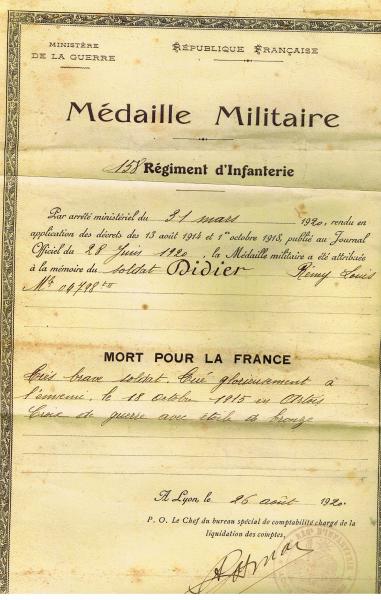 MINISTÈRE
DE LA GUERRE
RÉPUBLIQUE FRANÇAISE
Médaille Militaire
158 Régiment d'Infanterie
Par arrêté ministériel du 31 mars 1920, rendu en
application des décrets des 13 août 1914 et 1er octobre 1918, publié au Journal
Officiel du 28 Juin 1920, la Médaille militaire a été attribuée
à la mémoire du soldat Didier Rémy Louis
Mle 04798
MORT POUR LA FRANCE
Très brave soldat. Tué glorieusement à
l'ennemi, le 18 octobre 1915 en Artois
Croix de guerre avec étoile de bronze
A Lyon, le 26 août 1920.
P. O. Le Chef du bureau spécial de comptabilité chargé de la
liquidation des comptes,